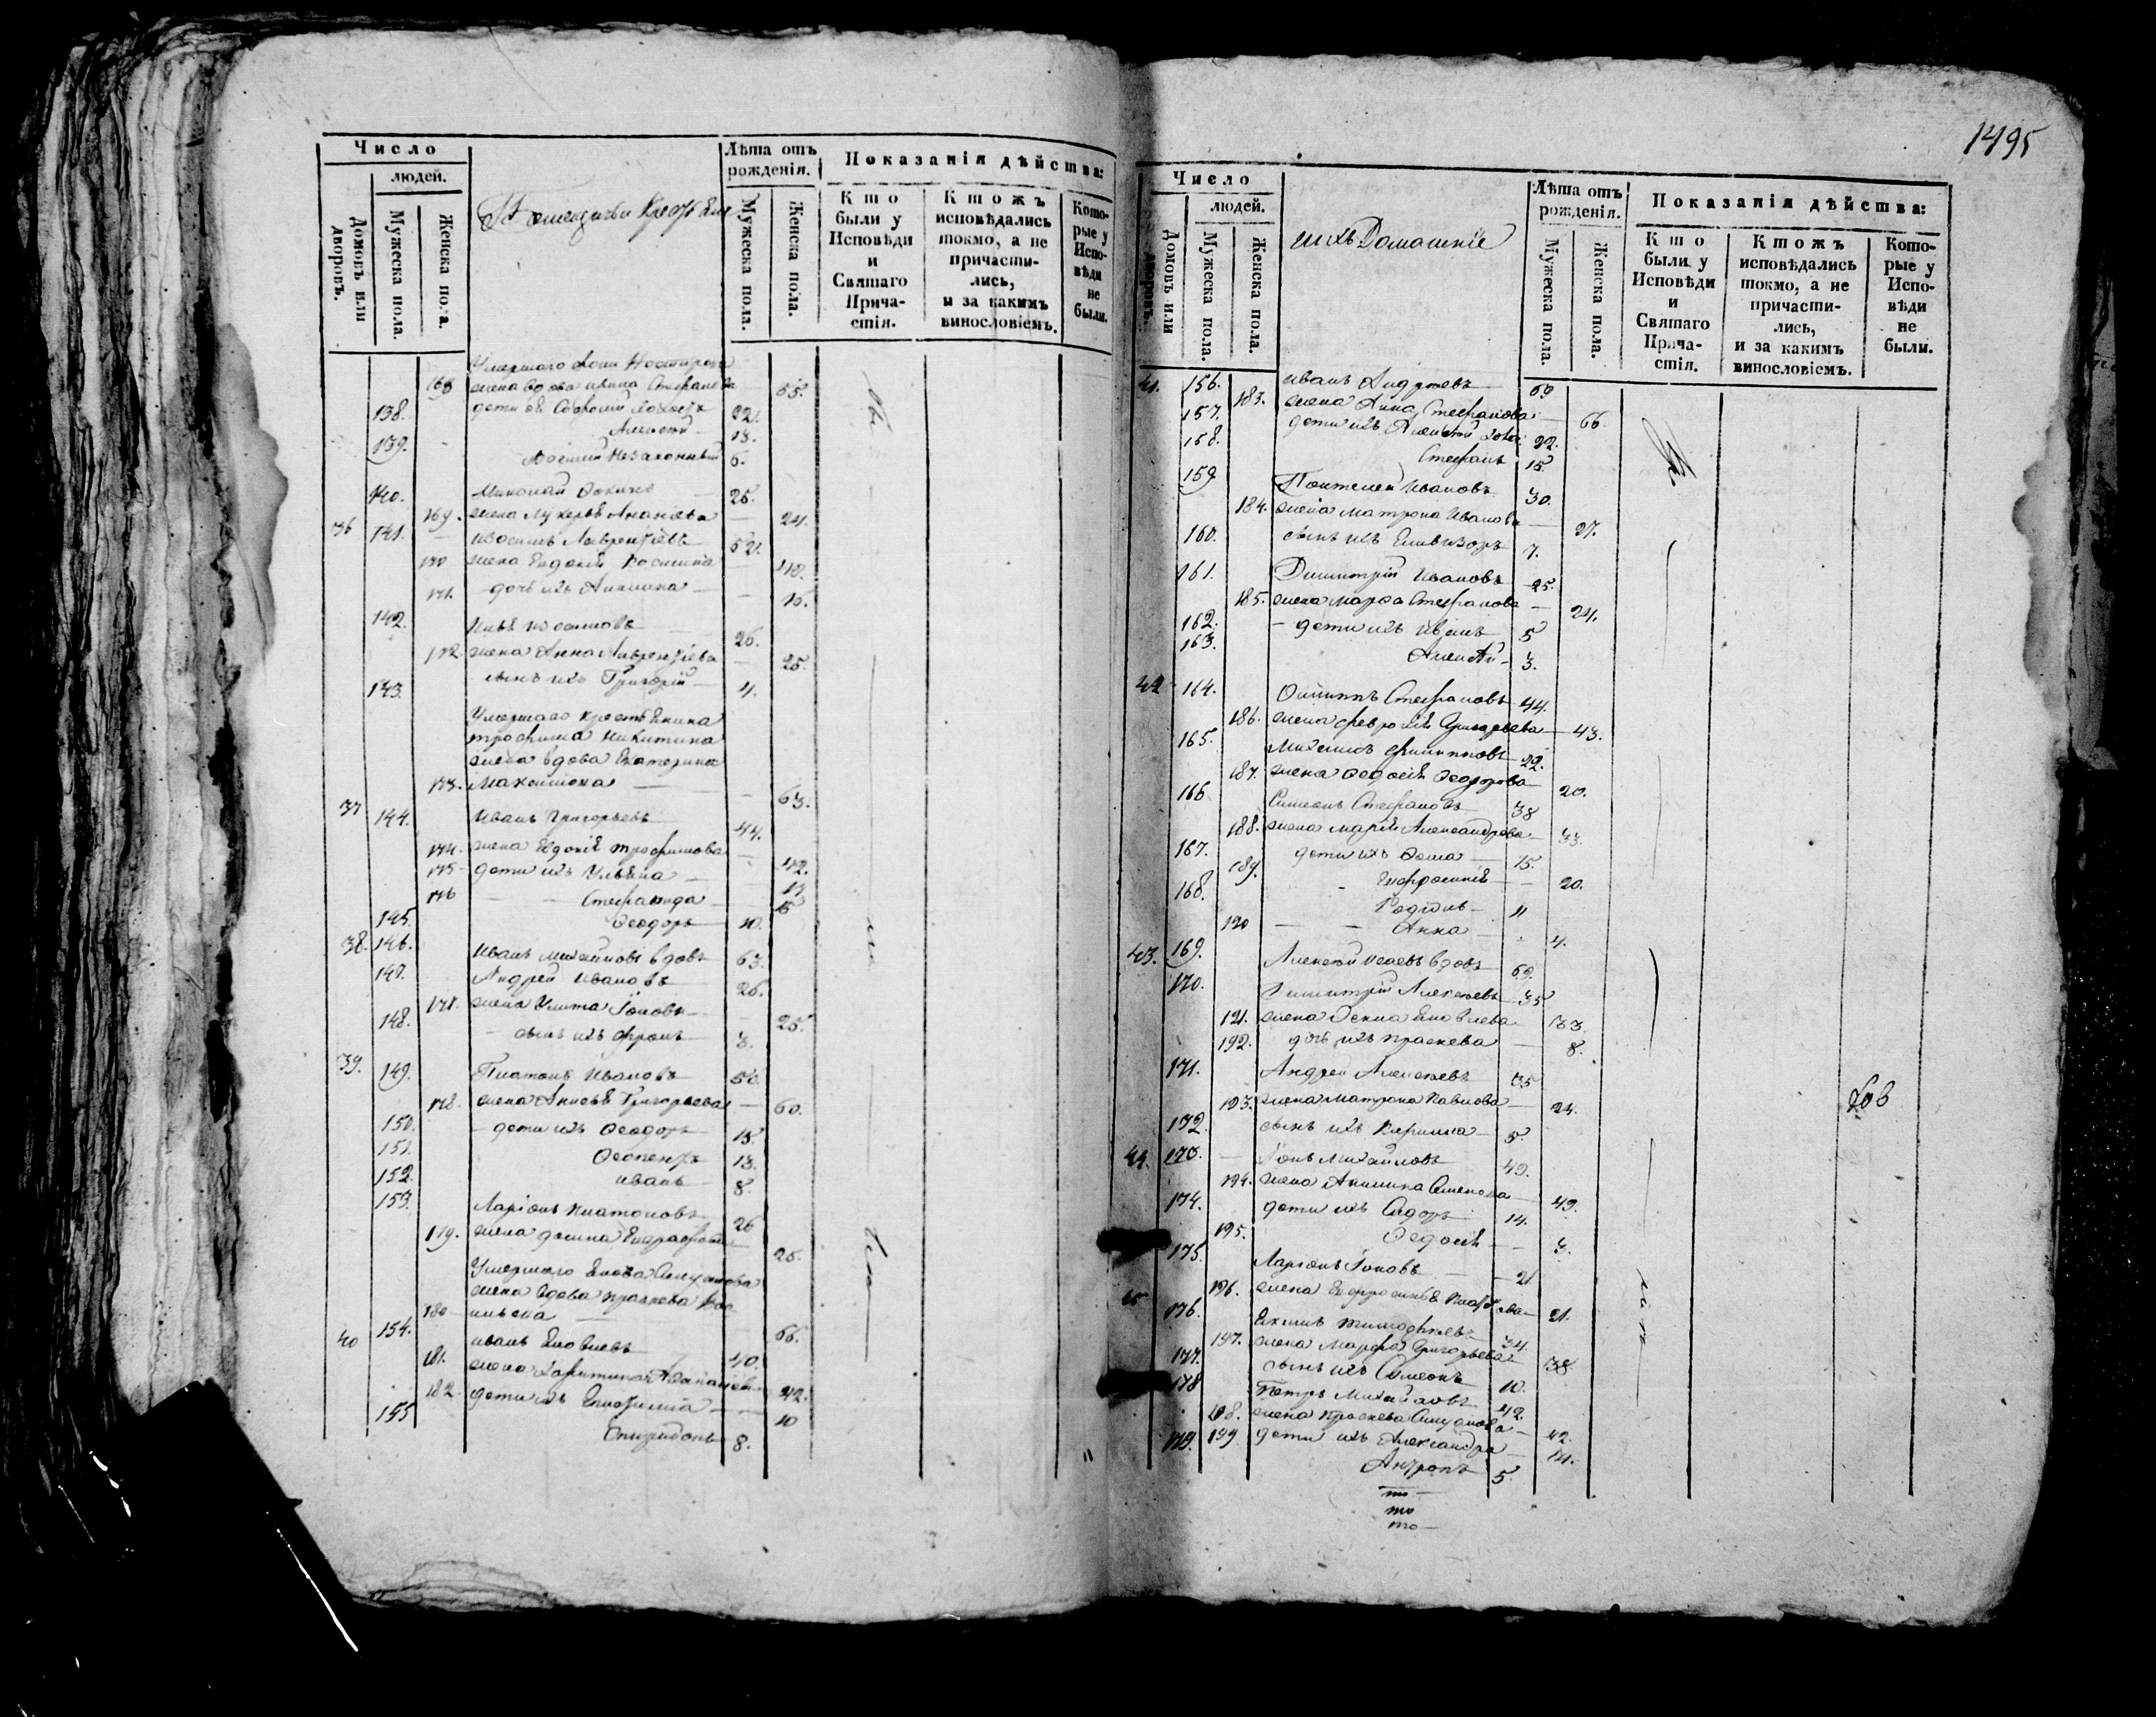 1495
Число
людей.
Домовъ или дворовъ.
Мужеска пола.
Женска пола.
Помещичьи Крестьяне
Лѣта отъ рожденія.
Мужеска пола.
Женска пола.
Показанія дѣйства:
Кто были у Исповѣди и Святаго Причастія.
Ктожъ исповѣдались токмо, а не причастились, и за какимъ винословіемъ.
Которые у Исповѣди не были.
Умершаго
168 жена вдова Ирина Стефанова 55.
138. дети ея Софроній холостъ 22.
139. Алексей 13.
Незаконный 6.
140. Николай 25.
169. жена Лукерья Ананьева 24.
36 141. Изосимъ Лаврентіевъ 52.
170 жена Евдокія 48.
171. дочь ихъ Акилина 15.
142. Илья Изосимовъ 26.
172 жена Анна Лаврентіева 25.
143. сынъ ихъ Григорій 4.
Умершаго крестьянина
трофима Никитина
жена вдова Екатерина
173. Максимова 63.
37 144. Иванъ Григорьевъ 44.
174. жена Евдокія трофимова 42.
175 дети ихъ Ульяна
176 Стефанида 15
145. Феодоръ 10.
38. 146. Иванъ Михайловъ вдовъ 63.
147. Андрей Ивановъ 26.
177. жена Улита Іонова 25.
148. сынъ ихъ Фролъ 3.
39. 149. Платонъ Ивановъ 56.
178. жена Анисья Григорьева 60.
150. дети ихъ Феодоръ 15.
151. Феопентъ 13.
152. Иванъ 8.
153. Ларіонъ Платоновъ 26
179. жена домна 25.
Умершаго Якова
жена вдова Праскева
180 66.
40 154. Иванъ Яковлевъ 40.
181. жена Харитина 42.
182 дети ихъ 10
155 Спиридонъ 8.
Число
людей.
Домовъ или дворовъ.
Мужеска пола.
Женска пола.
ихъ Домашніе
Лѣта отъ рожденія.
Мужеска пола.
Женска пола.
Показанія дѣйства:
Кто были у Исповѣди и Святаго Причастія.
Ктожъ исповѣдались токмо, а не причастились, и за какимъ винословіемъ.
Которые у Исповѣди не были.
41. 156. Иванъ Андреевъ 69
183. жена Анна Стефанова 66.
157. дети ихъ Алексей 22.
158. Стефанъ 15
159 Пантелей Ивановъ 30.
184. жена Матрона Иванова 27.
160. сынъ ихъ 7.
161. Димитрій Ивановъ 25.
185. жена Марфа Стефанова 24.
162. дети ихъ Иванъ 5
163. Алексей 3.
42 164. Филиппъ Стефановъ 44.
186. жена Февронія Григорьева 43.
165. Михаилъ Филипповъ 22.
187. жена Феодосія Феодорова 20.
166 Симеонъ Стефановъ 38
188. жена Марія Александрова 33.
167. дети ихъ Фома 15.
189. Евфросинія 20.
168. Родіонъ 11
190 Анна 4.
43. 169. Алексей Исаевъ вдовъ 69.
170. Димитрій Алексеевъ 35
191. жена Фекла Яковлева 33.
192. дочь ихъ Праскева 8.
171. Андрей Алексеевъ 35
193. жена Матрона Павлова 24.
172. сынъ ихъ 5
44. 173. Іонъ Михайловъ 49.
194. жена Акилина Семенова 49.
174. дети ихъ Сидоръ 14.
195. Федосія 3.
175. Ларіонъ Іоновъ 21
196. жена Евфросинья 21.
45 176. Екимъ Тимофеевъ 34.
197. жена Марфа Григорьева 38.
177. сынъ ихъ Симеонъ 10.
178 Петръ Михайловъ 42.
198. жена Праскева 42.
199 дети ихъ Александра 14.
179. Антропъ 5
то
то
то